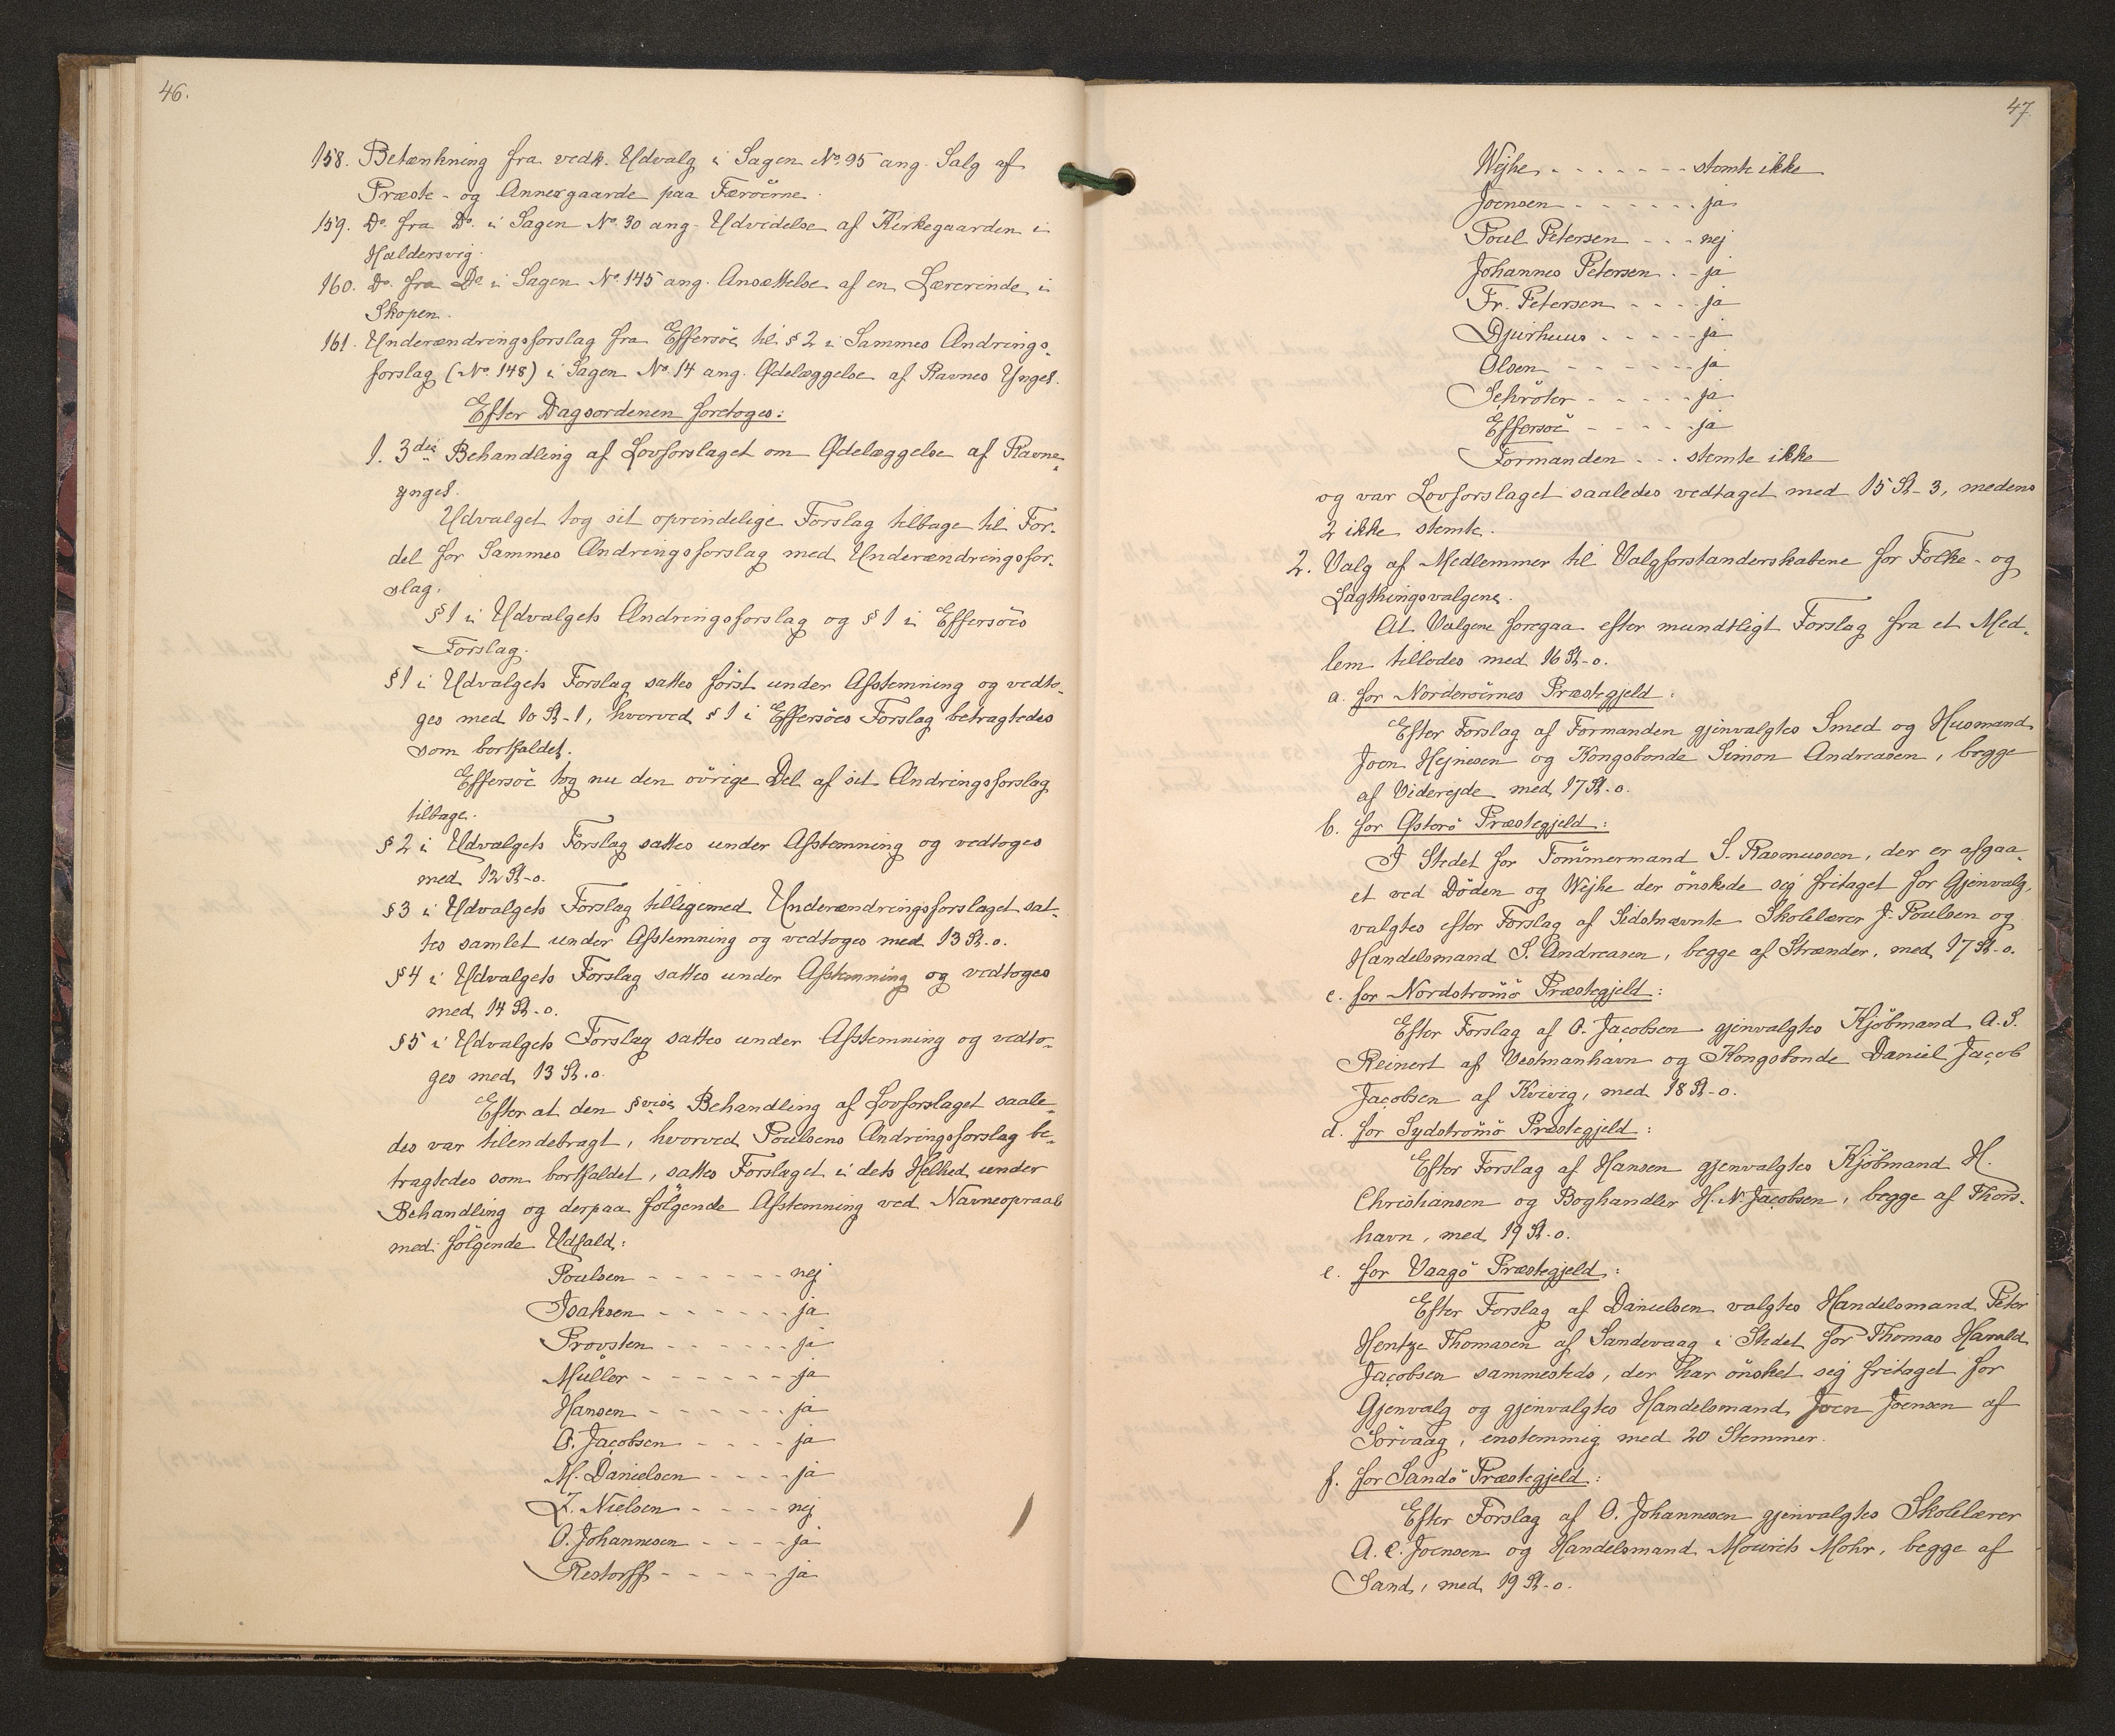 46.
158. Betænkning fra vedk. Udvalg i Sagen No. 95 ang. Salg af
Præste- og Annexgaarde paa Færöerne.
159. Do. fra Do. i Sagen No. 30 ang. Udvidelse af Kirkegaarden i
Haldersvig.
160. Do. fra Do. i Sagen No. 145 ang. Ansættelse af en Lærerinde i
Skopen.
161. Underændringsforslag fra Effersöe til § 2 i Sammes Ændrings-
forslag (No. 148) i Sagen No. 14 ang. Ødelæggelse af Ravnes Yngel.
Efter Dagsordenen foretoges:
1. 3die Behandling af Lovforslaget om Ødelæggelse af Ravne-
yngel.
Udvalget tog sit oprindelige Forslag tilbage til For-
del for Sammes Ændringsforslag med Underændringsfor-
slag.
§ 1 i Udvalgets Ændringsforslag og § 1 i Effersöes
Forslag.
§ 1 i Udvalgets Forslag sattes först under Afstemning og vedto-
ges med 10 St-1, hvorved § 1 i Effersöes Forslag betragtedes
som bortfaldet.
Effersöe tog nu den övrige Del af sit Ændringsforslag
tilbage.
§ 2 i Udvalgets Forslag sattes under Afstemning og vedtoges
med 12 St-0.
§ 3 i Udvalgets Forslag tilligemed Underændringsforslaget sat-
tes samlet under Afstemning og vedtoges med 13 St.-0.
§ 4 i Udvalgets Forslag sattes under Afstemning og vedtoges
med 14 St-0.
§ 5 i Udvalgets Forslag sattes under Afstemning og vedto-
ges med 13 St.-0.
Efter at den §vise Behandling af Lovforslaget saale-
des var tilendebragt, hvorved Poulsens Ændringsforslag be-
tragtedes som bortfaldet, sattes Forslaget i dets Helhed under
Behandling og derpaa fölgende Afstemning ved Navneopraab
med fölgende Udfald:
Poulsen - - - - - - nej
Isaksen - - - - - - ja
Provsten - - - - - - ja
Müller - - - - - - ja
Hansen - - - - - - ja
O. Jacobsen - - - - ja
M. Danielsen - - - - ja
Z. Nielsen - - - - nej
O. Johannesen - - - - ja
Restorff - - - - - ja
47
Wejhe - - - - - - - stemte ikke
Joensen - - - - - - ja
Poul Petersen - - - nej
Johannes Petersen . - ja
Fr. Petersen - - - - ja
Djurhuus - - - - - ja
Olsen - - - - - - ja
Schröter - - - - - ja
Effersöe - - - - - ja
Formanden - - - stemte ikke
og var Lovforslaget saaledes vedtaget med 15 St-3, medens
2 ikke stemte.
2. Valg af Medlemmer til Valgforstanderskabene for Folke- og
Lagthingsvalgene.
At Valgene foregaa efter mundtligt Forslag fra et Med-
lem tillodes med 16 St-0.
a. for Norderöernes Præstegjeld:
Efter Forslag af Formanden gjenvalgtes Smed og Husmand
Joen Hejnesen og Kongsbonde Simon Andreasen, begge
af Viderejde med 17 St.-0.
b. for Österö Præstegjeld:
I Stedet for Tömmermand S. Rasmussen, der er afgaa-
et ved Döden og Wejhe der önskede sig fritaget for Gjenvalg,
valgtes efter Forslag af Sidstnævnte Skolelærer J. Poulsen og
Handelsmand S. Andreasen, begge af Strænder, med 17 St-0.
c. for Nordströmö Præstegjeld:
Efter Forslag af O. Jacobsen gjenvalgtes Kjöbmand A.S.
Reinert af Vestmanhavn og Kongsbonde Daniel Jacob
Jacobsen af Kvivig, med 18 St-0.
d. for Sydströmö Præstegjeld:
Efter Forslag af Hansen gjenvalgtes Kjöbmand H.
Christiansen og Boghandler H.N. Jacobsen, begge af Thors-
havn, med 19 St.-0.
e. for Vaagö Præstegjeld:
Efter Forslag af Danielsen valgtes Handelsmand Peter
Hentze Thomasen af Sandevaag i Stedet for Thomas Harald
Jacobsen sammesteds, der har önsket sig fritaget for
Gjenvalg og gjenvalgtes Handelsmand Joen Joensen af
Sörvaag, enstemmig med 20 Stemmer.
f. for Sandö Præstegjeld:
Efter Forslag af O. Johannesen gjenvalgtes Skolelærer
A.C. Joensen og Handelsmand Mourits Mohr, begge af
Sand, med 19 St.-0.